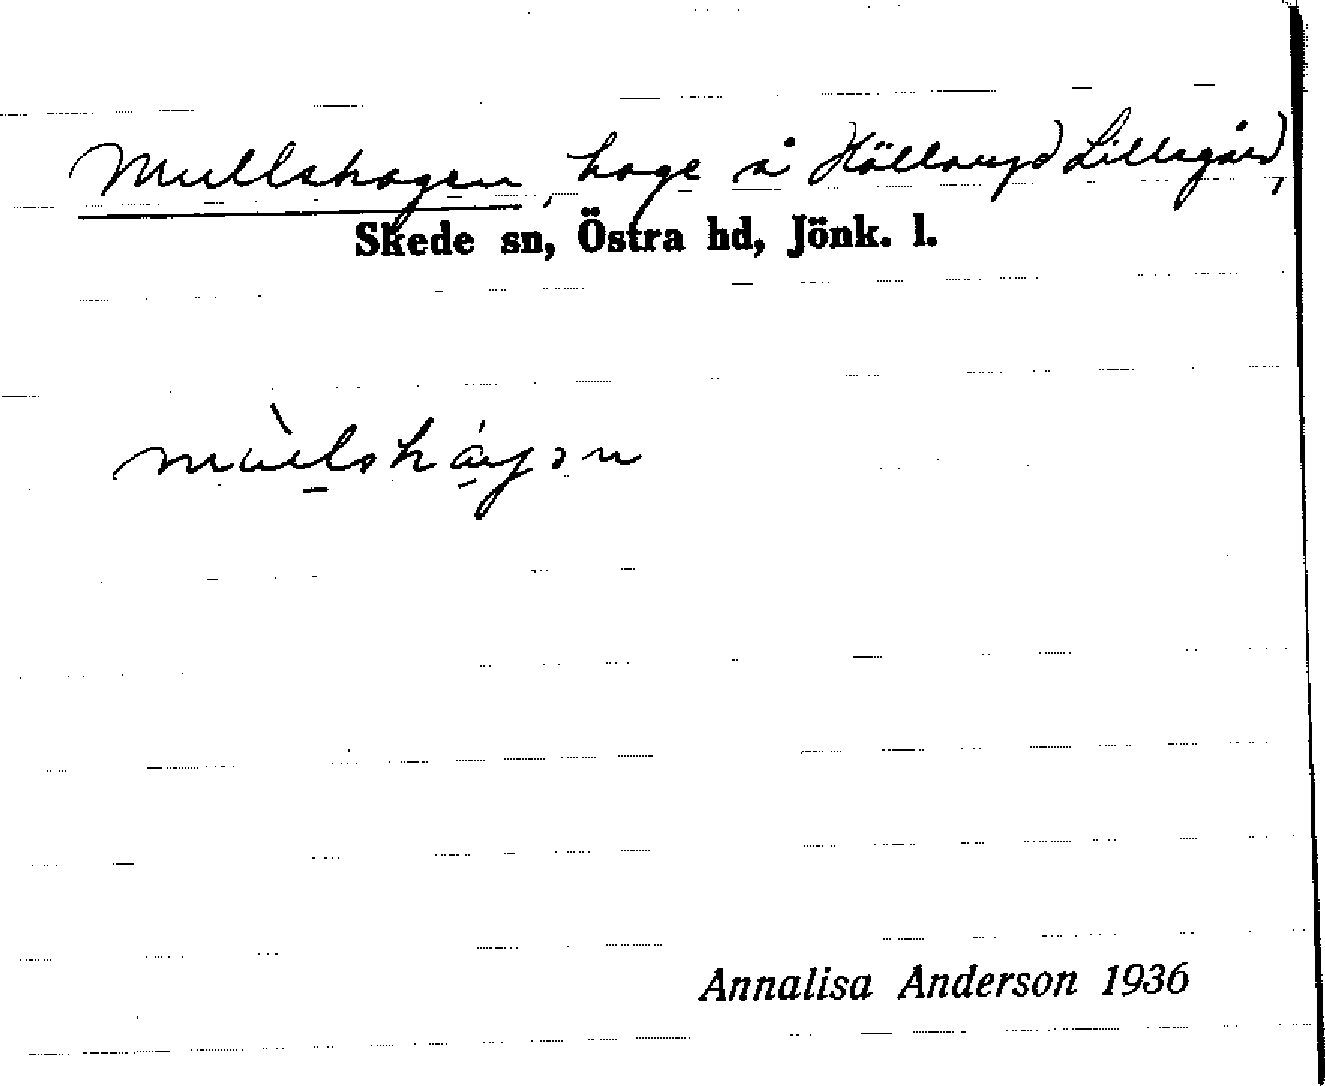 Mullshagen, hage å Hälleryd Lillegård,
Skede sn, Östra hd, Jönk. l.
Annalisa Anderson 1936